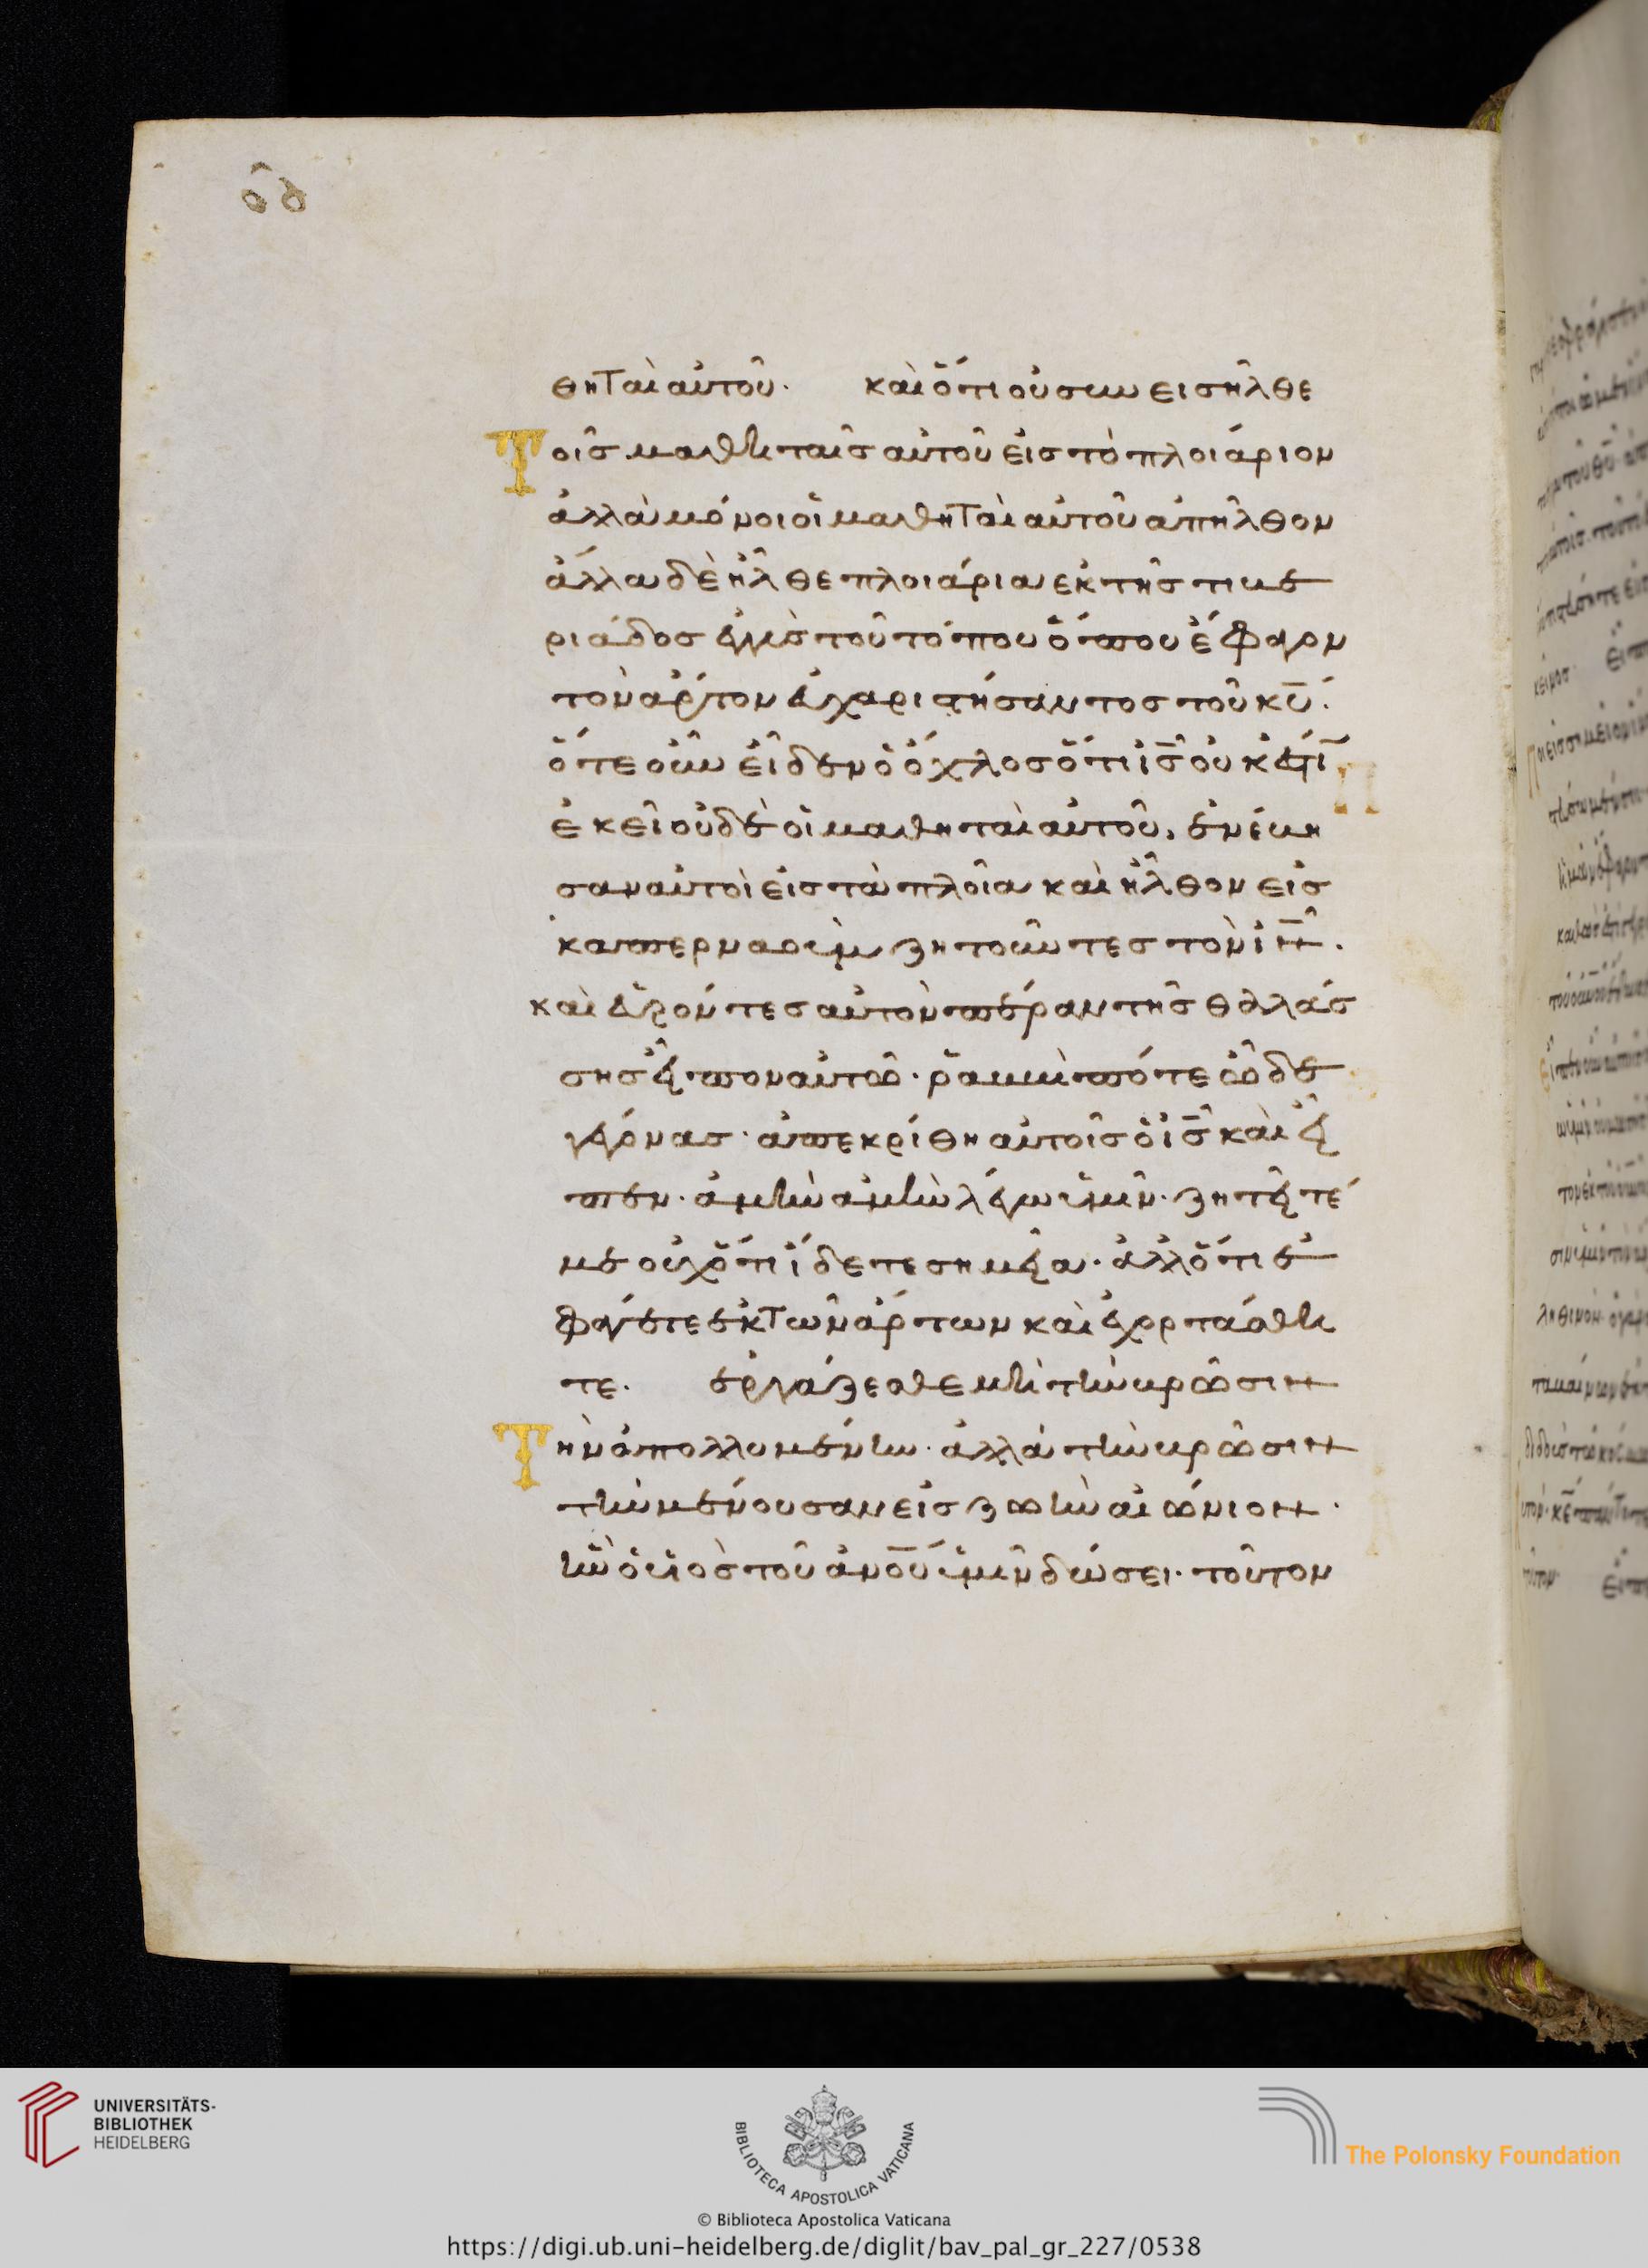 οδ
θηταὶ αὐτοῦ· καὶ ὅτι οὐ συν εισῆλθε
Τοῖς μαθηταῖς αὐτοῦ εἰς τὸ πλοιάριον
ἀλλὰ μόνοι οἱ μαθηταὶ αὐτοῦ ἀπῆλθον
ἄλλα δὲ ἦλθε πλοιάρια εκ τῆς τιβε
ριάδος ἐγγὺς τοῦ τόπου ὅπου ἔφαγον
τὸν ἄρτον εὐχαριστήσαντος τοῦ κ̅υ̅.
ὅτε οὖν εἶδεν ὁ ὄχλος ὅτι ἰ̅ς̅ οὐκ ἔστϊ
ἐκεῖ οὐδὲ οἱ μαθηταὶ αὐτοῦ, ἐνέβη
σαν αὐτοὶ εἰς τὰ πλοῖα καὶ ἦλθον εἰς
καπερναοὺμ ζητοῦντες τὸν ἰ̅ν̅.
καὶ εὑρόντες αὐτὸν πέραν τῆς θαλάσ
σης εἶπον αὐτῶ· ῥαββὶ πότε ὧδε
γέγονας· ἀπεκρίθη αὐτοῖς ὁ ἰ̅ς̅ καὶ εἶ
πεν· ἀμὴν ἀμὴν λέγω ὑμῖν· ζητεῖτέ
με οὐχ ὅτι ἴδετε σημεῖα· ἀλλ' ὅτι ἐ
φάγετε ἐκ τῶν ἄρτων καὶ ἐχορτάσθη
τε. ἐργάζεσθε μὴ τὴν βρῶσιν
Τὴν ἀπολλυμένην· ἀλλὰ τὴν βρῶσιν
τὴν μένουσαν εἰς ζωὴν αἰώνιον·
ἣν ὁ υἱὸς τοῦ ἀ̅ν̅ο̅υ̅ ὑμῖν δώσει· τοῦτον
UNIVERSITÄTS-
BIBLIOTHEK
HEIDELBERG
BIBLIOTECA APOSTOLICA VATICANA
The Polonsky Foundation
© Biblioteca Apostolica Vaticana
https://digi.ub.uni-heidelberg.de/diglit/bav_pal_gr_227/0538